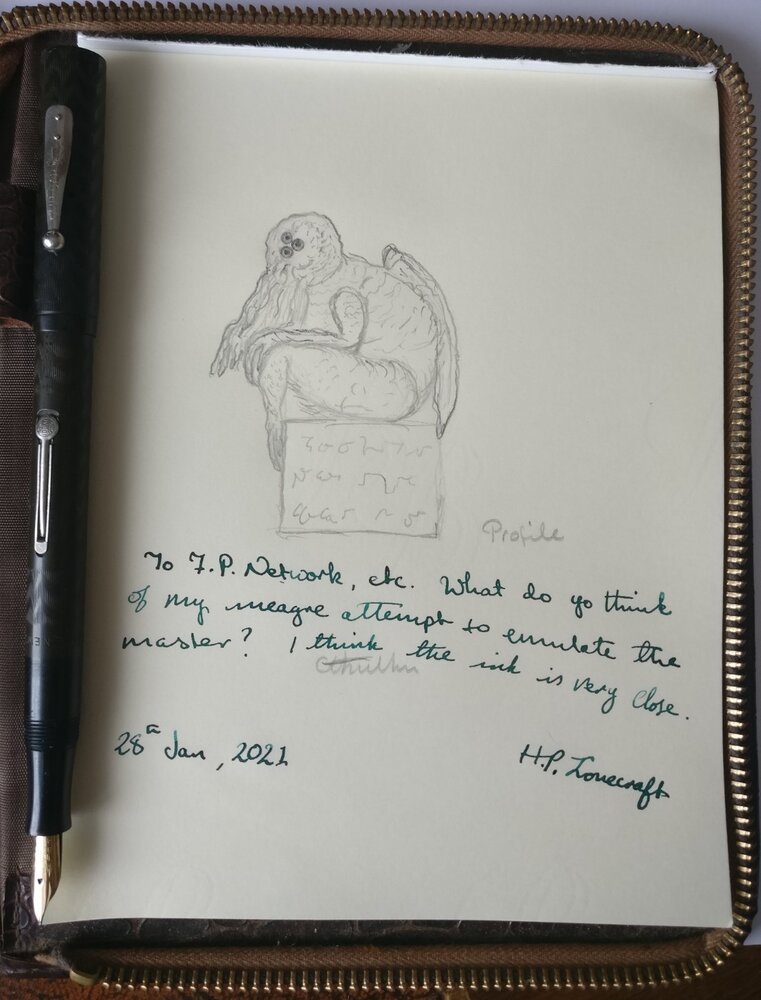 Profile
To F.P. Network, etc. What do yo think
of my meagre attempt to emulate the
master? I think the ink is very close.
Cthulhu
28th Jan, 2021
H.P. Lovecraft